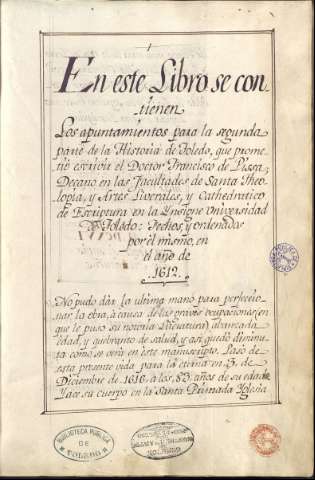 En este Libro se con
tienen
Los apuntamientos para la segunda
parte de la Historia de Toledo, que prome-
tió escrivir el Doctor Francisco de Pissa,
Decano en las Facultades de Santa Theo-
logia, y Artes Liverales, y Cathedratico
de Escriptura en la Insigne Universidad
de Toledo: Fechos, y ordenados
por el mismo, en
el año de
1612.
No pudo dar la ultima mano para perfeccio-
nar la obra, à causa de las graves ocupaciones, en
que le puso su notoria Literatura, abanzada
edad, y quebranto de salud, y asi quedó diminu-
ta como se verà en este manuscripto. Pasó de
esta presente vida para la eterna en 3. de
Diciembre de 1616. a los 83. años de su edad.
Yace su cuerpo en la Santa Primada Iglesia
BIBLIOTECA PUBLICA
DE
TOLEDO